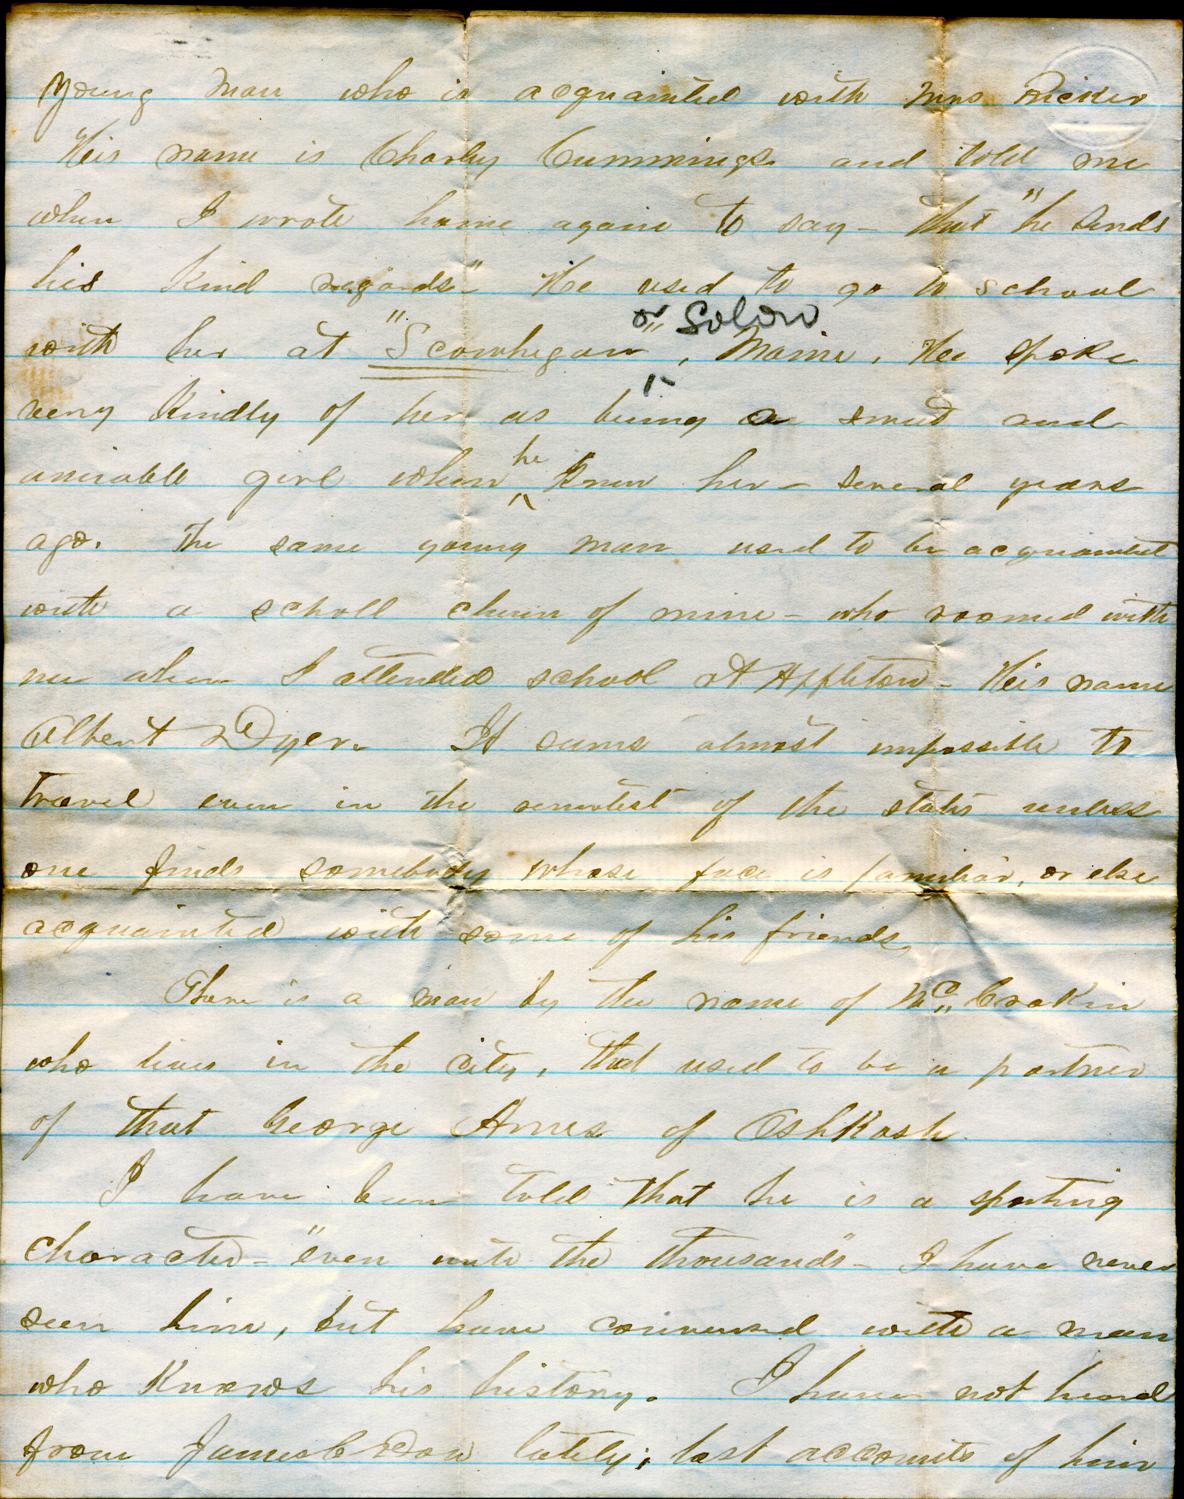 young man who is acquainted with Mrs Ricker
His name is Charley Cummings and told me
when I wrote home again to say - that "he sends
his kind regards" He used to go to school
or Solon
with her at "Scowhegan", Maine. He spoke
very kindly of her as being a smart and
amiable girl when he knew her - several years
ago. The same young man used to be acquainted
with a scholl chum of mine - who roomed with
me when I attended school at Appleton - His name
Albert Dyer. It seems almost impossible to
travel even in the remotest of the states unless
one finds somebody whose face is familiar, or else
acquainted with some of his friends,
There is a man by the name of Mc Crakin
who lives in the city, that used to be a partner
of that George Ames of OshKosh.
I have been told that he is a sporting
character - "even unto the thousands" - I have never
seen him, but have conversed with a man
who Knows his history. I have not heard
from James C Dow lately; last accounts of him